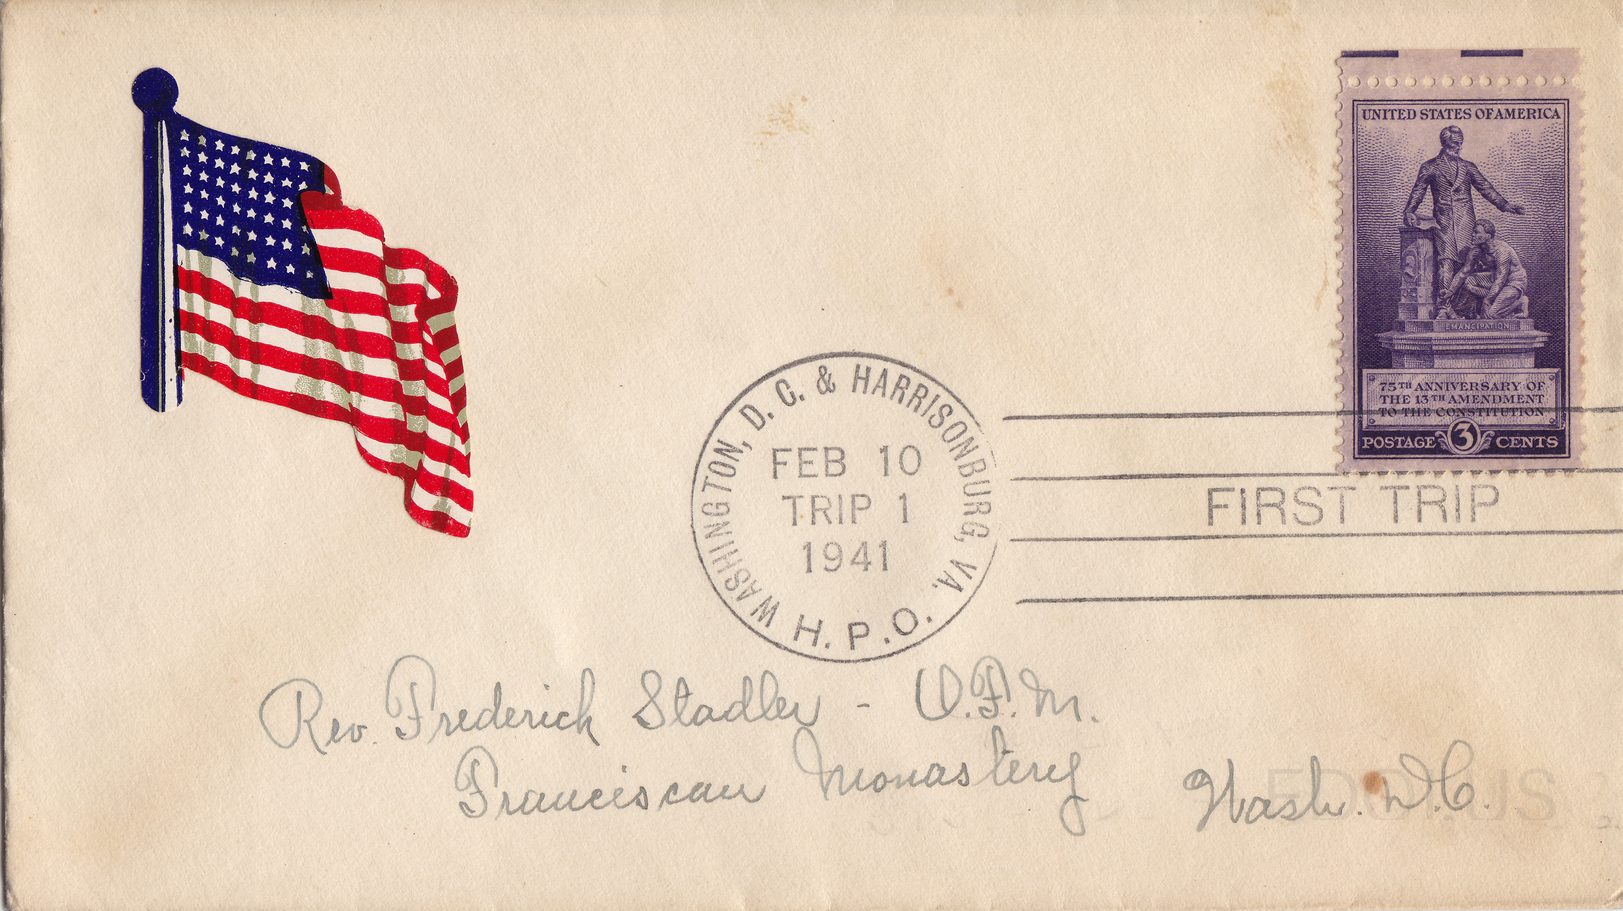 UNITED STATES OF AMERICA
EMANCIPATION
75TH ANNIVERSARY OF
THE 13TH AMENDMENT
TO THE CONSTITUTION
POSTAGE 3 CENTS
WASHINGTON, D. C. & HARRISONBURG, VA.
FEB 10
TRIP 1
1941
H. P. O.
FIRST TRIP
Rev. Frederick Stadler - O.F.M.
Franciscan Monastery Wash. D.C.